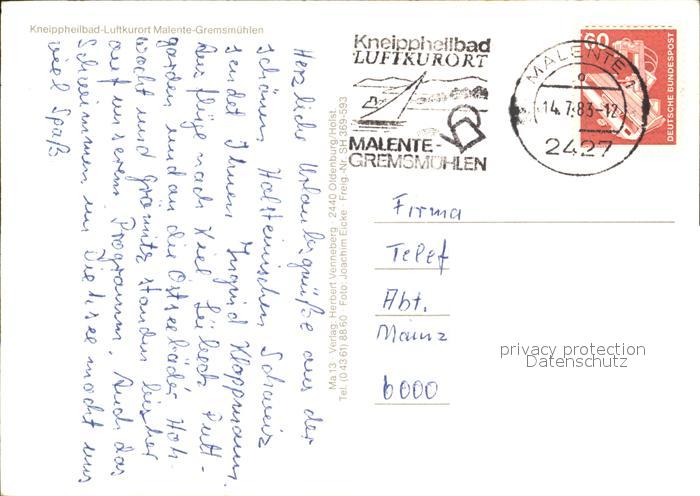 Kneippheilbad-Luftkurort Malente-Gremsmühlen
Herzliche Urlaubsgrüße aus der
schönen Holsteinischen Schweiz
sendet Ihnen Ingrid Kloppmann.
Ausflüge nach Kiel Lübeck Putt-
garden und an die Ostseebäder Hoh-
wacht und Grömitz standen bisher
auf unserem Programm. Auch das
Schwimmen im Dieksee macht uns
viel Spaß
Ma 13 · Verlag: Herbert Venneberg · 2440 Oldenburg/Holst.
Tel. (0 43 61) 88 60 · Foto: Joachim Eicke · Freig.-Nr. SH 369-593
Kneippheilbad
LUFTKURORT
MALENTE-
GREMSMÜHLEN
MALENTE 1
14.7.83-12
2427
60
DEUTSCHE BUNDESPOST
Firma
Telef
Abt.
Mainz
6000
privacy protection
Datenschutz